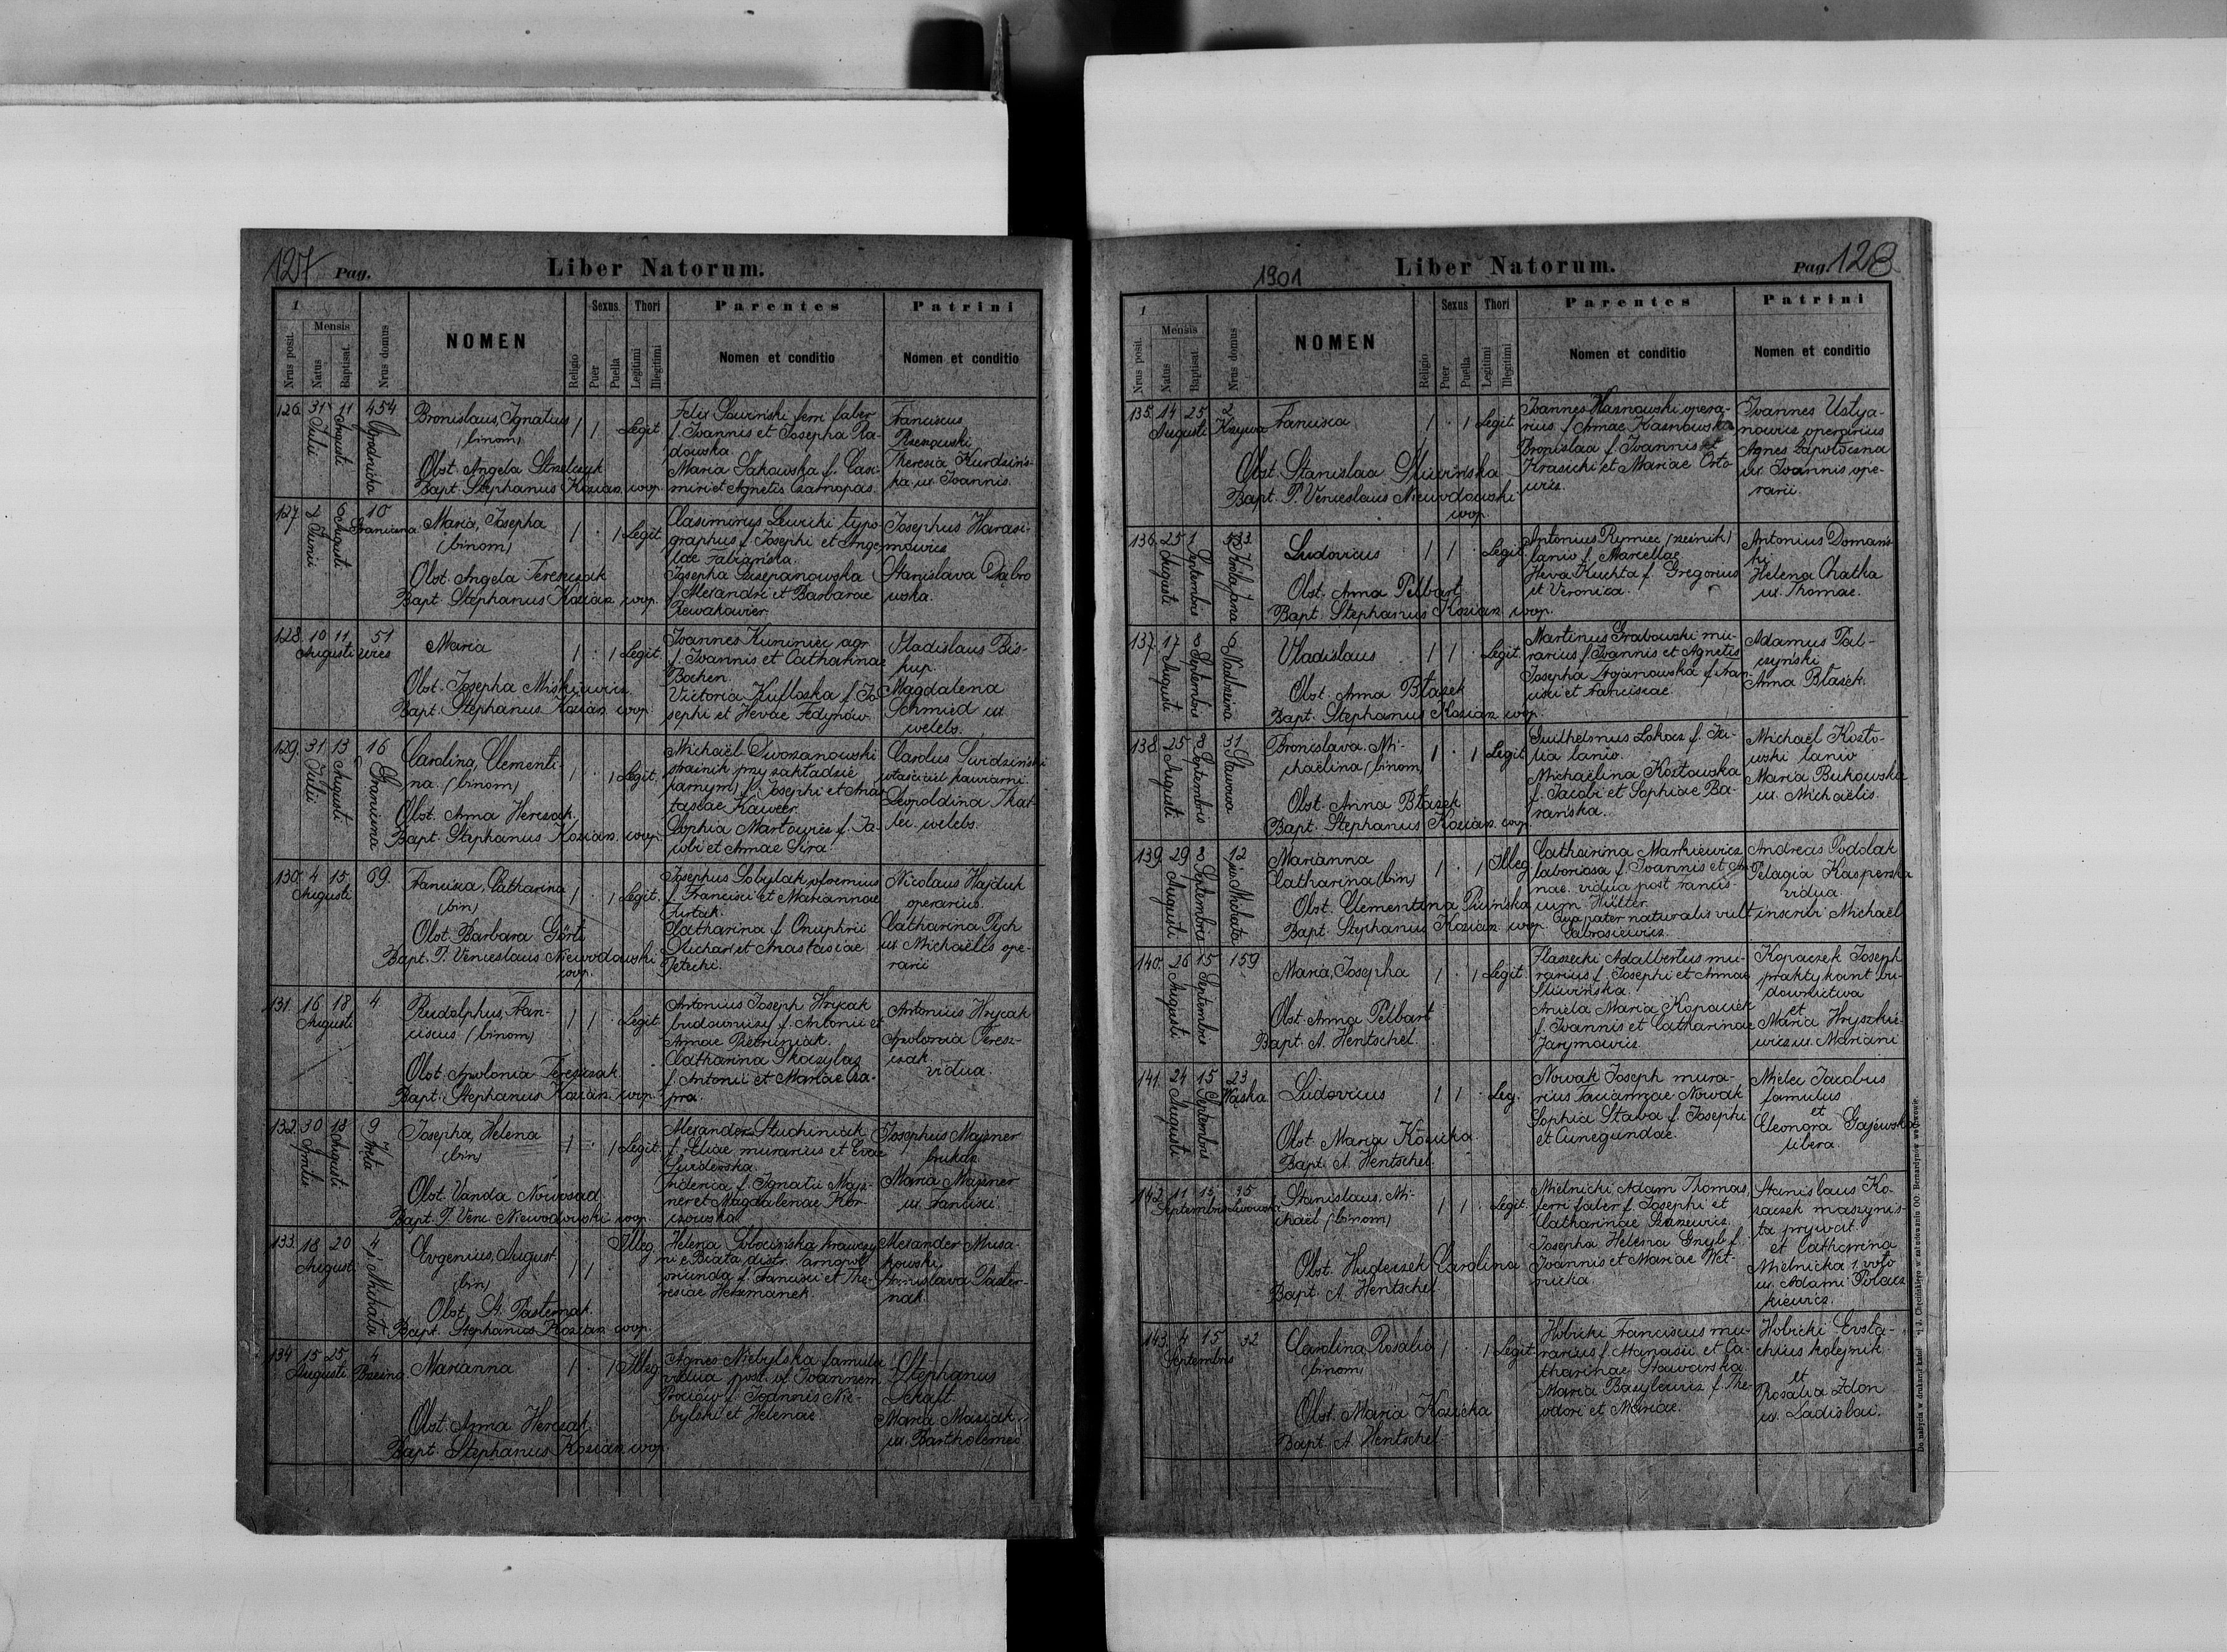 127 Pag.
Liber Natorum.
1
Nrus posit.
Mensis
Natus
Baptisat.
Nrus domus
NOMEN
Religio
Sexus
Puer
Puella
Thori
Legitimi
Illegitimi
Parentes
Nomen et conditio
Patrini
Nomen et conditio
126. 31 Julii 11 Augusti 454 Grodnicka
Bronislaus, Ignatius
(binom)
Obst. Angela Strzelczyk
Bapt. Stephanus Kozian coop.
1 1 Legit.
Felix Sawiński ferri faber
f. Joannis et Josepha Ra-
dowska.
Maria Sakowska f. Casi-
miri et Agnetis Czarnopas.
Franciscus
Rzeszowski
Theresia Kurdzińs-
ka ux. Joannis.
127. 2 Junii 6 Augusti 10 Graniczna
Maria, Josepha
(binom)
Obst. Angela Tereszczak
Bapt. Stephanus Kozian coop.
1 . 1 Legit.
Casimirus Lewicki typo-
graphus f. Josephi et Ange-
lae Fabiańska.
Josepha Szczepanowska
f. Alexandri et Barbarae
Josephus Harasi-
mowicz
Stanislava Dabro
wska.
128. 10 11 Augusti 51
Maria
Obst. Josepha Miśkiewicz
Bapt. Stephanus Kozian coop.
1 . 1 Legit.
Joannes Kuniniec agr.
f. Joannis et Catharinae
Bochen.
Victoria Kufloska f. Jo-
sephi et Hevae Fedynów.
Vladislaus Bis-
kup.
Magdalena
Schmied ux.
welebs.
129. 31 Julii 13 Augusti 16 Graniczna
Carolina, Clementi-
na. (binom)
Obst. Anna Herczak
Bapt. Stephanus Kozian coop.
1 . 1 Legit.
Michaël Dworzanowski
strażnik przy zakładzie
karnym) f. Josephi et Anas
tasiae Kaweer.
Sophia Martowicz f. Ja-
cobi et Annae Sira.
Carolus Swidziński
właściciel kawiarni
Leopoldina Tkal
lec. welebs.
130. 4 15 Augusti 69.
Francisca, Catharina
(bin)
Obst. Barbara Görtz
Bapt. P. Venceslaus Niewodowski
coop.
1 . 1 Legit.
Josephus Sobylak
f. Francisci et Mariannae
Furtak.
Catharina f. Onuphrii
Kuchar et Anastasiae
Petecki.
Nicolaus Hajduk
operarius.
Catharina Pych
ux. Michaëlis ope-
rarii
131. 16 18 Augusti 4
Rudolphus, Fran-
ciscus (binom)
Obst. Apolonia Tereszczak
Bapt. Stephanus Kozian coop.
1 1 . Legit.
Antonius Joseph Hrycak
budowniczy f. Antonii et
Annae Pietruniak.
Catharina Skaszylas
f. Antonii et Mariae Cza-
pra.
Antonius Hrycak
Apolonia Teresz-
czak.
vidua.
132. 30 Aprilis 18 Augusti 9 Kręta
Josepha, Helena
(bin)
Obst. Vanda Nowosad
Bapt. P. Venc. Niewodowski coop.
1 . 1 Legit.
Alexander Stuchiniak
f. Eliae murarius et Evae
Swiderska.
Friderica f. Ignatii Majz-
ner et Magdalenae Kor-
czowska
Josephus Majzner
brukaz.
Maria Majzner
ux. Francisci.
133. 18 20 Augusti 4 s. Michała
Evgenius, August
(bin)
Obst. St. Pasternak.
Bapt. Stephanus Kozian coop.
1 1 Illeg.
Helena Sobocińska krawczy
ni e Biała distr. Tarnopol
oriunda f. Francisci et The-
resiae Hermanek.
Alexander Musa-
kowski
Stanislava Paster-
nak.
134. 15 25 Augusti 4
Marianna
Obst. Anna Herczak
Bapt. Stephanus Kozian coop.
1 . 1 Illeg.
Agnes Niebylska famula
vidua post. vf. Joannem
Prociów f. Joannis Nie-
bylski et Helenae
Stephanus
Dekajt
Maria Maziak
ux. Bartholomei
1901
Liber Natorum.
Pag. 128
1
Nrus posit.
Mensis
Natus
Baptisat.
Nrus domus
NOMEN
Religio
Sexus
Puer
Puella
Thori
Legitimi
Illegitimi
Parentes
Nomen et conditio
Patrini
Nomen et conditio
135. 14 25 Augusti 2 Krzywa
Francisca
Obst. Stanislaa Sliwińska
Bapt. P. Venceslaus Niewodowski
coop.
1 . 1 Legit.
Joannes Kasnowski opera-
rius f. Annae Kasnowska
Bronislaa f. Joannis et
Krasicki et Mariae Orto-
wicz.
Joannes Ustya-
nowicz operarius
Agnes Zapotoczna
ux. Joannis ope-
rarii.
136. 25 Augusti 1 Septembris 433. Krola Jana
Ludovicus
Obst. Anna Pelbart
Bapt. Stephanus Kozian coop.
1 1 . Legit.
Antonius Rymiec (rzeźnik)
lanio f. Marcellae
Heva Kuchta f. Gregorius
et Veronica.
Antonius Domańs-
ki
Helena Chatka
ux. Thomae.
137. 17 Augusti 8 Septembris 6 Nadbrzeżna
Vladislaus
Obst. Anna Błażek
Bapt. Stephanus Kozian coop.
1 1 . Legit.
Martinus Grabowski mu-
rarius f. Joannis et Agnetis
Josepha Trojanowska f. Fran-
cisci et Franciscae.
Adamus Pal-
czyński
Anna Błażek.
138. 25 Augusti 8 Septembris 31 Stawowa
Bronislava. Mi-
chaëlina (binom)
Obst. Anna Błażek
Bapt. Stephanus Kozian coop.
1 . 1 Legit.
Guilhelmus Lokacz f. Ju-
lia lanio.
Michaëlina Kozłowska
f. Jacobi et Sophiae Ba-
rańska.
Michaël Kozło-
wski lanio
Maria Bukowska
ux. Michaëlis.
139. 29 Augusti 8 Septembris 12 św. Michała
Marianna
Catharina (bin)
Obst. Clementina Piwńska
Bapt. Stephanus Kozian coop.
1 . 1 Illeg.
Catharina Markiewicz
laboriosa f. Joannis et An-
nae. vidua post Francis-
cum Hütter.
Qua pater naturalis vult inscribi Michaël
Gabrosiewicz.
Andreas Podolak
Pelagia Kasperska
vidua.
140. 26 Augusti 15 Septembris 159
Maria, Josepha
Obst. Anna Pelbart
Bapt. A. Hentschel.
1 . 1 Legit.
Flaszecki Adalbertus mu-
rarius f. Josephi et Annae
Sliwińska.
Aniela Maria Kopaczek
f. Joannis et Catharinae
Jarymowicz.
Kopaczek Joseph
praktykant bu-
downictwa
et
Maria Hryszkie-
wicz ux. Mariani
141. 24 Augusti 15 Septembris 23 Wąska
Ludovicus
Obst. Maria Kozicka
Bapt. A. Hentschel.
1 1 . Leg.
Nowak Joseph mura-
rius Mariannae Nowak
Sophia Staba f. Josephi
et Cunegundae.
Mielec Jacobus
famulus
et
Eleonora Gajewska
libera.
142. 11 15 Septembris 95 Lwowska
Stanislaus, Mi-
chaël (binom)
Obst. Hudeczek Carolina
Bapt. A. Hentschel.
1 1 . Legit.
Mielnicki Adam Thomas,
ferri faber f. Josephi et
Catharinae
Josepha Helena Gryb f.
Joannis et Mariae Wit-
wicka.
Stanislaus Ko-
zaczek maszynis-
ta prywat.
et Catharina
Mielnicka 1. voto
ux. Adami Polacz
kiewicz.
143. 4 15 Septembris 32
Carolina, Rosalia
(binom)
Obst. Maria Kozicka
Bapt. A. Hentschel
1 . 1 Legit.
Hobicki Franciscus mu-
rarius f. Atanasii et Ca-
tharinae Stawarska.
Maria Bazylewicz f. The-
odori et Mariae.
Hobicki Evsta-
chius kolejnik.
et
Rosalia Zdon
ux. Ladislai.